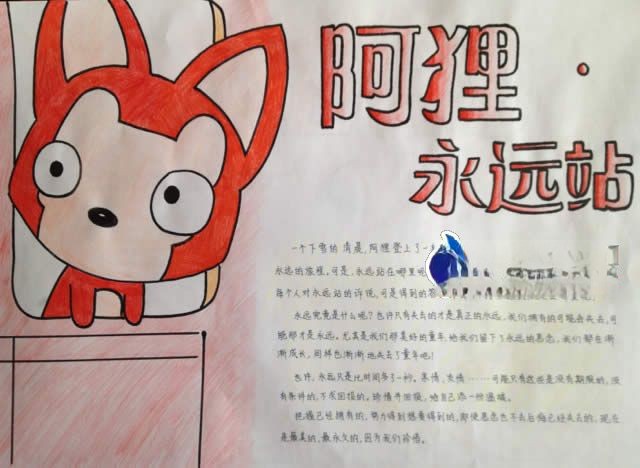 阿狸·
永远站
一个下雪的清晨,阿狸登上了一
永远的旅程,可是,永远站在哪里呢
每个人对永远站的诉说,可是得到的答
永远究竟是什么呢?也许只有失去的才是真正的永远,我们拥有的可能会失去,可
能那才是永远。尤其是我们那美好的童年,她我们留下了永远的思念,我们都在渐
渐成长,同样也渐渐地失去了童年吧!
也许,永远只是比时间多了一秒。亲情,友情……可能只有这些是没有期限的,没
有条件的,不求回报的。珍惜并回报,给自己添一些温暖。
把握已经拥有的,努力得到想要得到的,即使思念也不去后悔已经失去的,现在
是最美的,最永久的,因为我们珍惜。